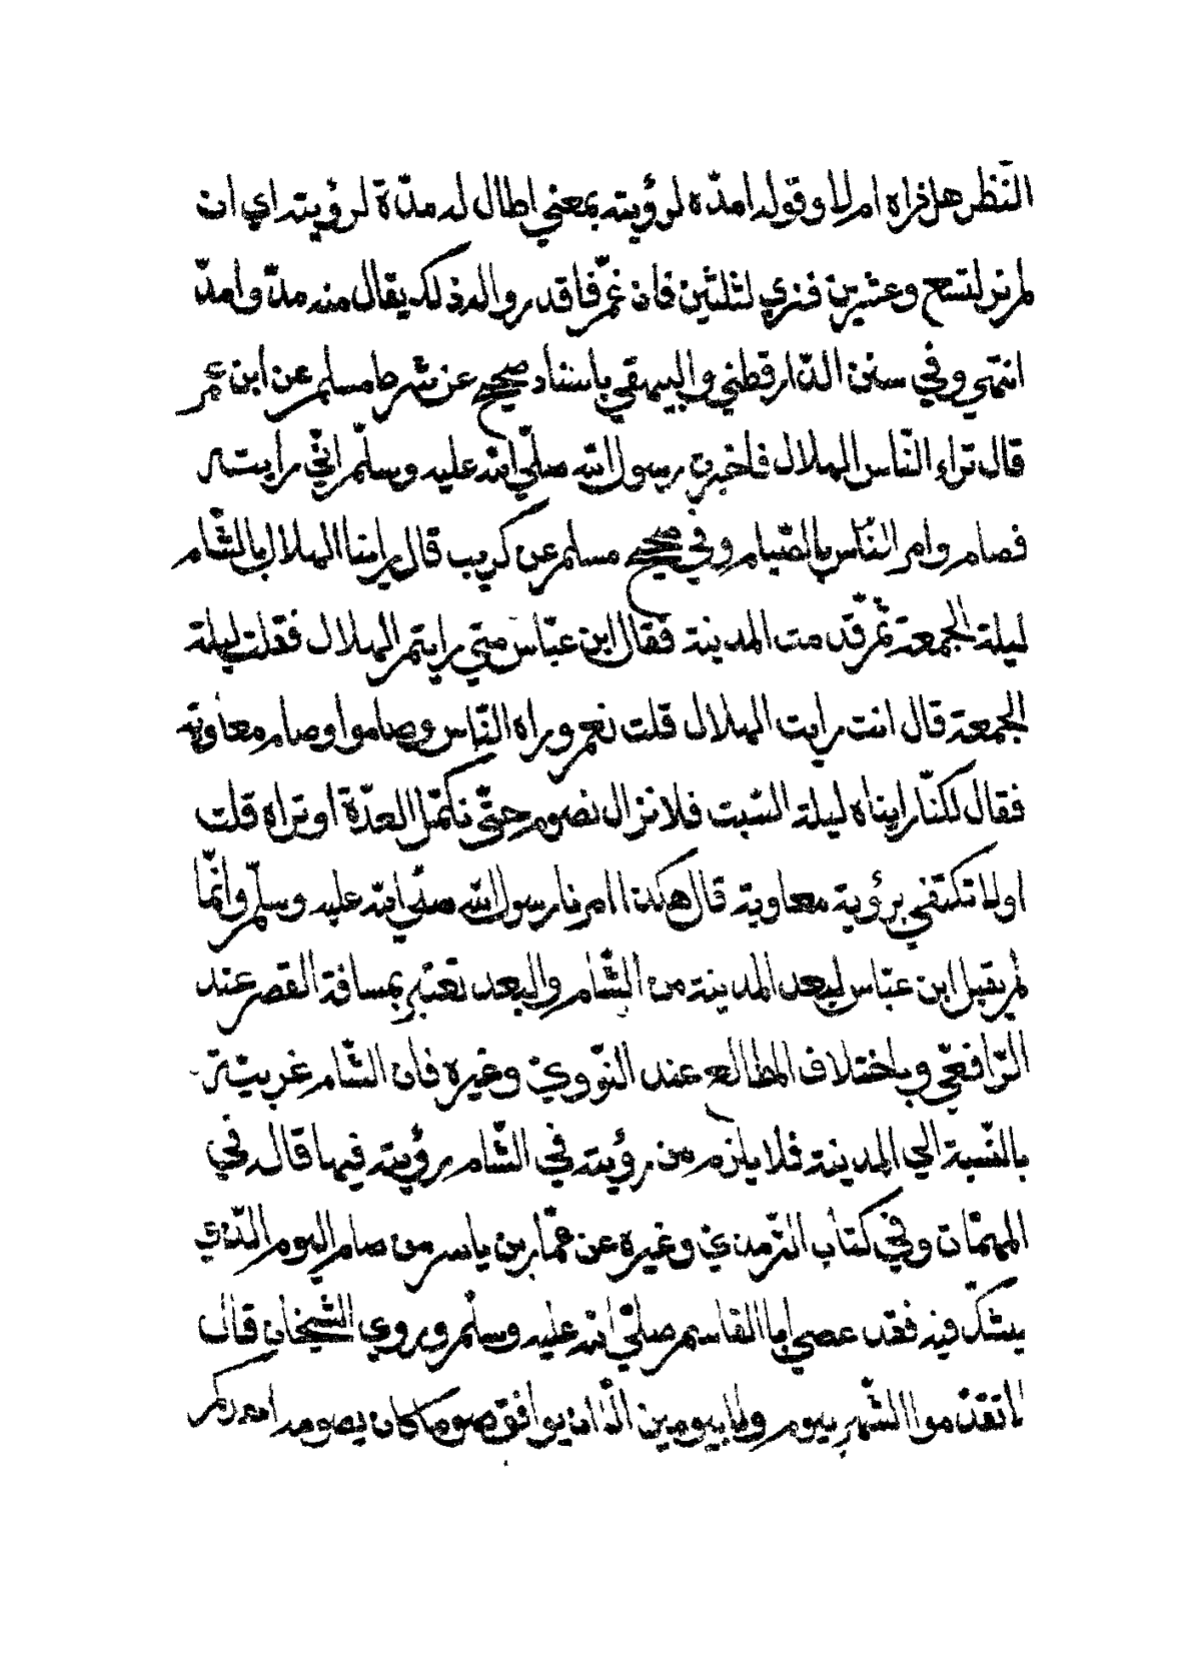 النّظر هل نراه ام لا وقوله امدّه لرؤيته بمعني اطال له مدّة لرؤيته اي ان
لم نر لتسع وعشرين فنري لثلثين فان غمّ فاقدروا له ذلك يقال منه مدّ وامدّ
انتهي وفي سنن الدّارقطني والبيهقي باسناد صحيح عن شرط مسلم عن ابن عمر
قال تراءِ النّاس الهلال فاخبرت رسول الله صلّي الله عليه وسلّم انّي رايته
فصام وامر النّاس بالصّيام وفي صحيح مسلم عن كريب قال راينا الهلال بالشّام
ليلة الجمعة ثمّ قدّمت المدينة فقال ابن عبّاس متي رايتم الهلال فقلت ليلة
الجمعة قال انت رايت الهلال قلت نعم وراه النّاس وصاموا وصام معاوية
فقال لكنّا رايناه ليلة السّبت فلا نزال نصوم حتّي نكمّل العدّة او نراه قلت
اولا تكتفي برؤية معاوية قال هكذا امرنا رسول الله صلّي الله عليه وسلّم وانّما
لم يقبل ابن عبّاس لبعد المدينة من الشّام والبعد تعتبر بمسافة القصر عند
الرّافعّي وباختلاف المطالع عند النّووي وغيره فان الشّام غربيّة
بالنّسبة الي المدينة فلا يلزم من رؤيته في الشّام رؤيته فيها قاله في
المهمّات وفي كتاب الترّمذي وغيره عن عمّار بن ياسر من صام اليوم الّذي
يشكّ فيه فقد عصي ابا القاسم صلّي الله عليه وسلّم وروي الشّيخان قال
لا تقدّموا الشّهر بيوم ولا بيومين الّا ان يوافق صوما كان يصومه احدكم